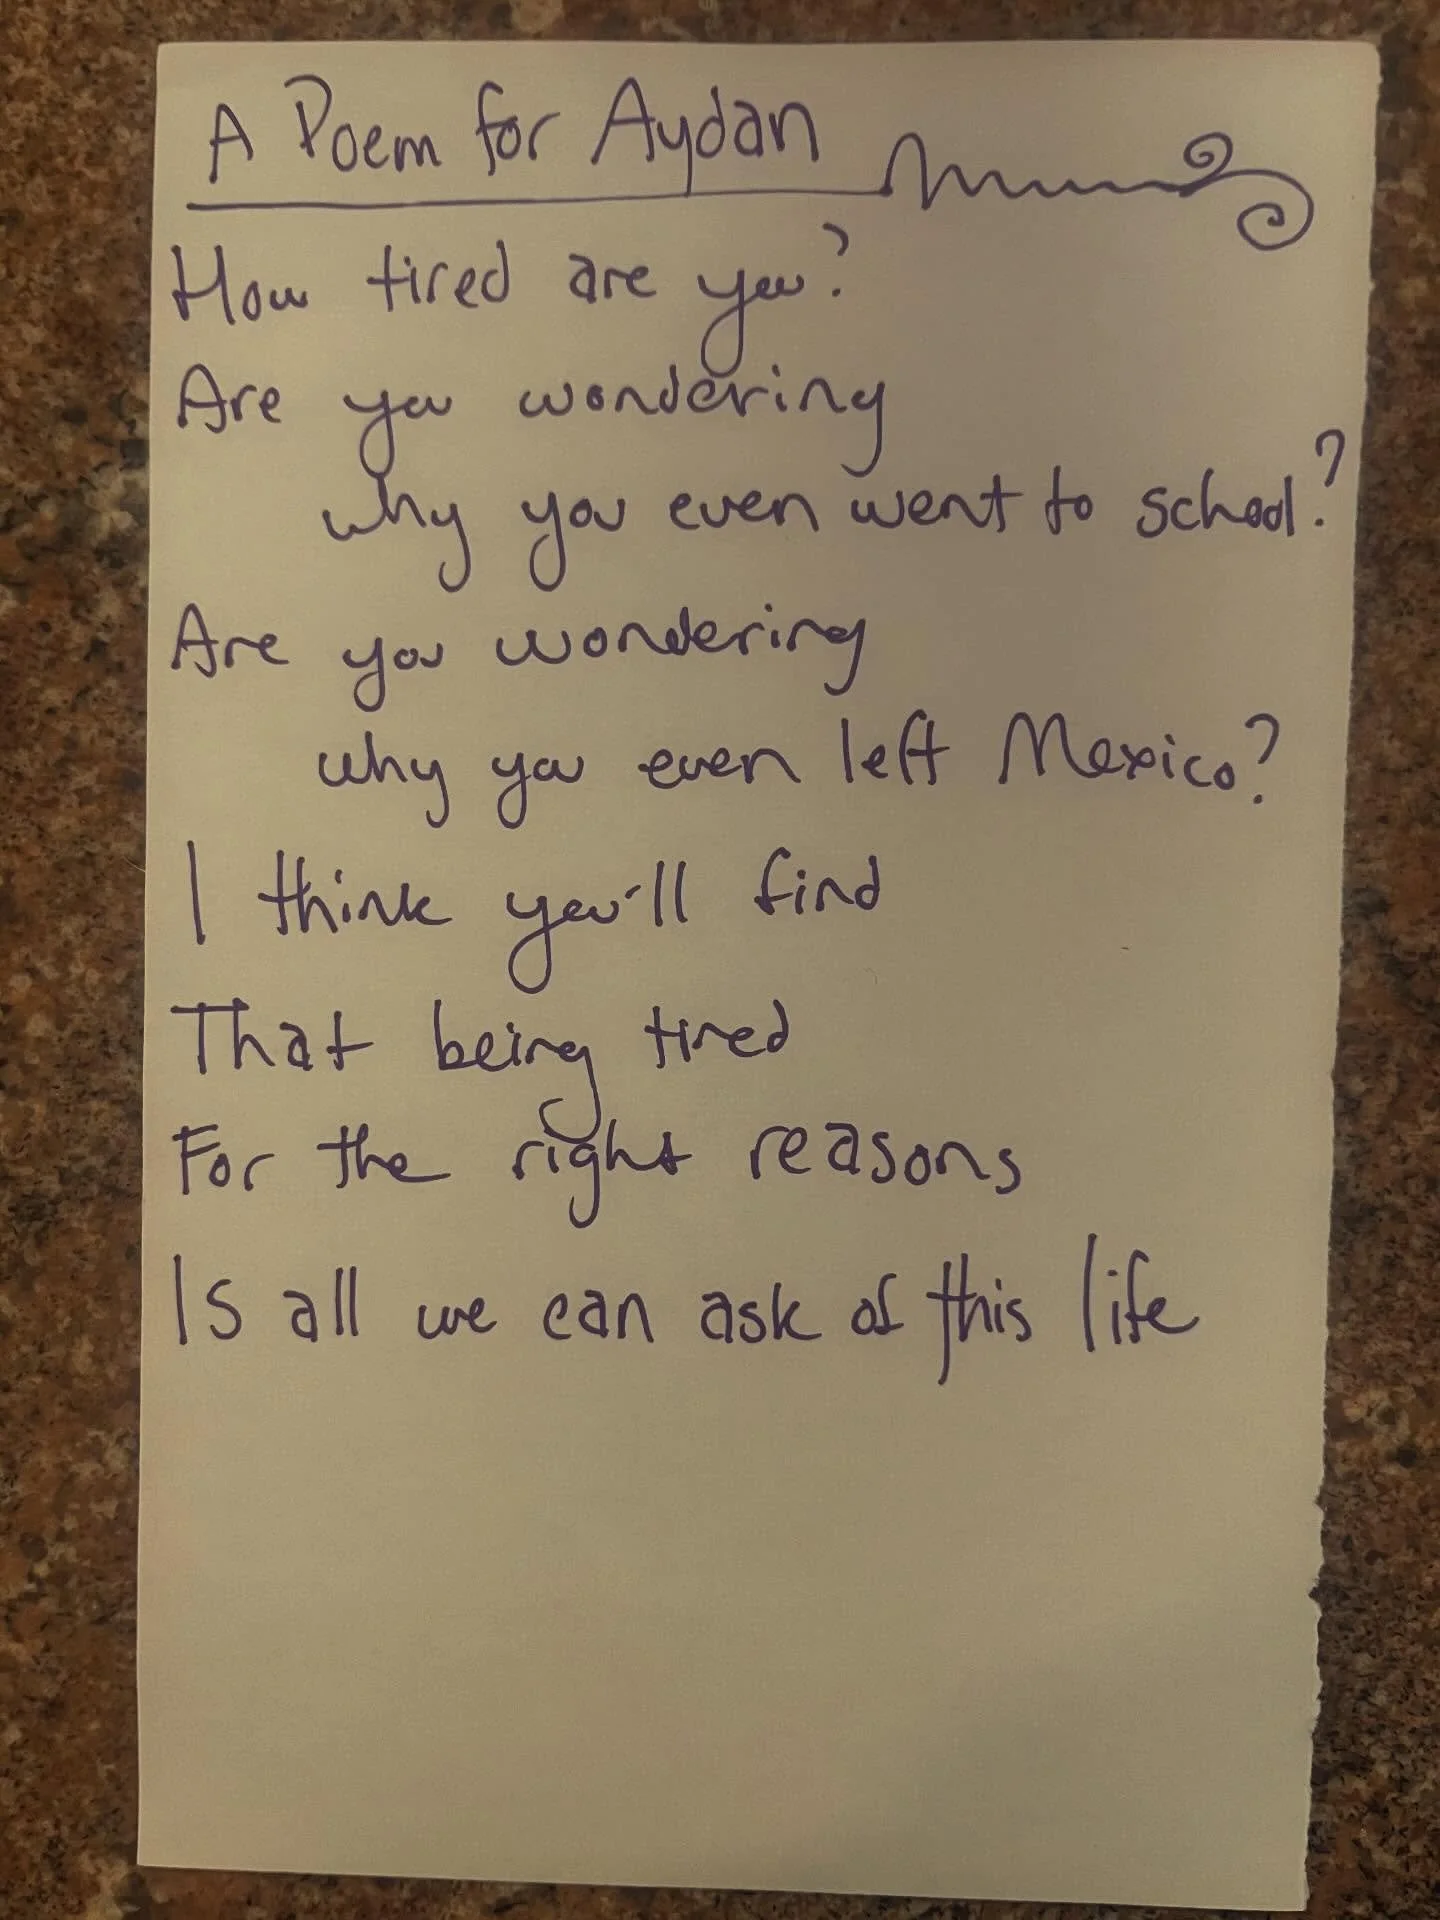 A Poem for Aydan
How tired are you?
Are you wondering
why you even went to school?
Are you wondering
why you even left Mexico?
I think you'll find
That being tired
For the right reasons
Is all we can ask of this life